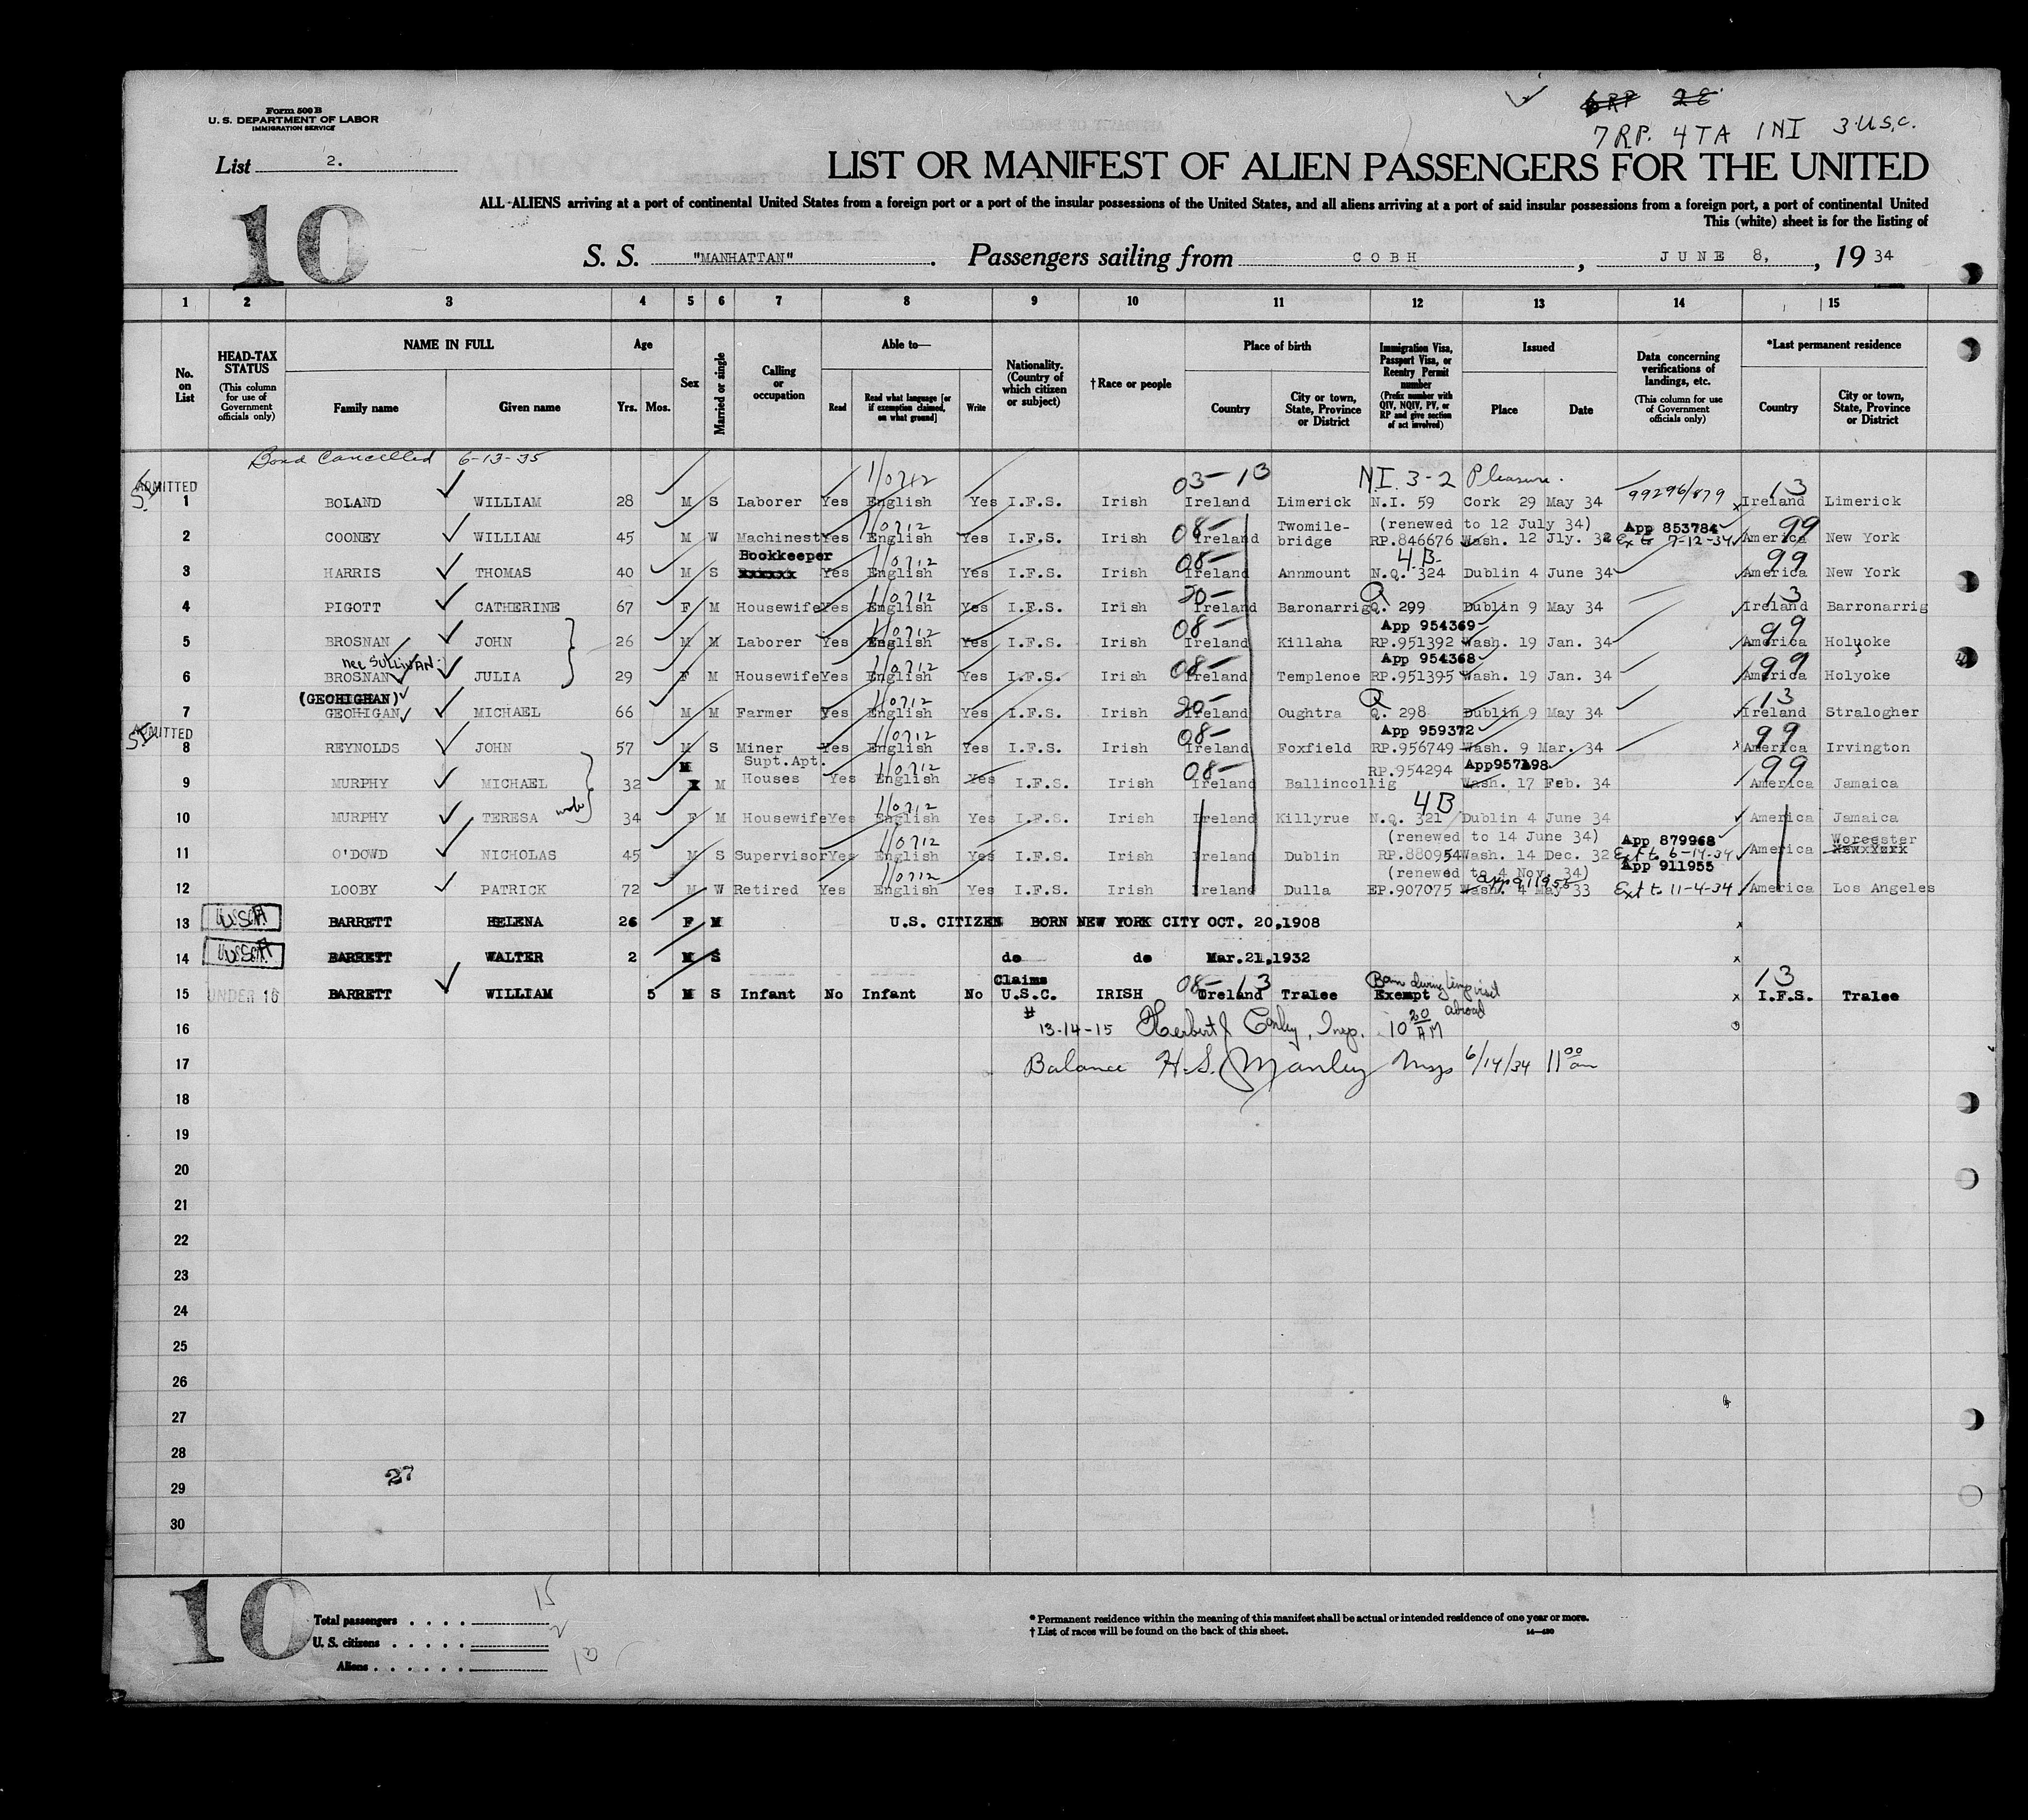 Form 500 B
U. S. DEPARTMENT OF LABOR
IMMIGRATION SERVICE
6RP 2C
7 RP. 4 TA 1 NI 3 U.S.C.
List 2.
LIST OR MANIFEST OF ALIEN PASSENGERS FOR THE UNITED
10
ALL ALIENS arriving at a port of continental United States from a foreign port or a port of the insular possessions of the United States, and all aliens arriving at a port of said insular possessions from a foreign port, a port of continental United
This (white) sheet is for the listing of
S. S. "MANHATTAN". Passengers sailing from COBH, JUNE 8, 19 34
1 2 3 4 5 6 7 8 9 10 11 12 13 14 15
No. on List
HEAD-TAX STATUS (This column for use of Government officials only)
NAME IN FULL Family name Given name
Age Yrs. Mos.
Sex
Married or single
Calling or occupation
Able to— Read Read what language [or if exemption claimed, on what ground] Write
Nationality. (Country of which citizen or subject)
†Race or people
Place of birth Country City or town, State, Province or District
Immigration Visa, Passport Visa, or Reentry Permit number (Prefix number with QIV, NQIV, PV, or RP and give section of act involved)
Issued Place Date
Data concerning verifications of landings, etc. (This column for use of Government officials only)
*Last permanent residence Country City or town, State, Province or District
Bond Cancelled 6-13-35
ADMITTED 1/0712 03-13 N.I. 3-2 Pleasure. 99296/879 13
1 BOLAND WILLIAM 28 M S Laborer Yes English Yes I.F.S. Irish Ireland Limerick N.I. 59 Cork 29 May 34 Ireland Limerick
1/0712 08- Twomile- (renewed to 12 July 34) App 853784 99
2 COONEY WILLIAM 45 M W Machinest Yes English Yes I.F.S. Irish Ireland bridge RP.846676 Wash. 12 Jly. 32 Ex to 7-12-34 America New York
Bookkeeper 1/0712 08- 4 B. 99
3 HARRIS THOMAS 40 M S xxxxxx Yes English Yes I.F.S. Irish Ireland Annmount N.Q. 324 Dublin 4 June 34 America New York
1/0712 20- Q 13
4 PIGOTT CATHERINE 67 F M Housewife Yes English Yes I.F.S. Irish Ireland Baronarrig Q. 299 Dublin 9 May 34 Ireland Barronarrig
1/0712 08- App 954369 99
5 BROSNAN JOHN 26 M M Laborer Yes English Yes I.F.S. Irish Ireland Killaha RP.951392 Wash. 19 Jan. 34 America Holyoke
nee SULLIVAN 1/0712 08- App 954368 99
6 BROSNAN JULIA 29 F M Housewife Yes English Yes I.F.S. Irish Ireland Templenoe RP.951395 Wash. 19 Jan. 34 America Holyoke
(GEOHIGHAN) 1/0712 20- Q 13
7 GEOHIGAN MICHAEL 66 M M Farmer Yes English Yes I.F.S. Irish Ireland Oughtra Q. 298 Dublin 9 May 34 Ireland Stralogher
ADMITTED 1/0712 08- App 959372 99
8 REYNOLDS JOHN 57 M S Miner Yes English Yes I.F.S. Irish Ireland Foxfield RP.956749 Wash. 9 Mar. 34 America Irvington
M Supt.Apt. 1/0712 08- RP.954294 App957198 99
9 MURPHY MICHAEL 32 X M Houses Yes English Yes I.F.S. Irish Ireland Ballincollig Wash. 17 Feb. 34 America Jamaica
1/0712 4 B.
10 MURPHY TERESA wife 34 F M Housewife Yes English Yes I.F.S. Irish Ireland Killyrue N.Q. 321 Dublin 4 June 34 America Jamaica
1/0712 (renewed to 14 June 34) App 879968 Worcester
11 O'DOWD NICHOLAS 45 M S Supervisor Yes English Yes I.F.S. Irish Ireland Dublin RP.880954 Wash. 14 Dec. 32 Ext to 6-14-34 America
1/0712 (renewed to 4 Nov. 34) App 911955 App 911955
12 LOOBY PATRICK 72 M W Retired Yes English Yes I.F.S. Irish Ireland Dulla EP.907075 Wash. 4 May 33 Ext to 11-4-34 America Los Angeles
13 BARRETT HELENA 26 F M U.S. CITIZEN BORN NEW YORK CITY OCT. 20,1908
14 BARRETT WALTER 2 M S do do Mar.21,1932
Claims 08-13 Born during temp visit abroad 13
15 UNDER 16 BARRETT WILLIAM 5 M S Infant No Infant No U.S.C. IRISH Ireland Tralee Exempt I.F.S. Tralee
16 # 13-14-15 Herbert J Conley, Insp. 10 20 AM
17 Balance H.S. Manley Insp 6/14/34 11 00 am
18
19
20
21
22
23
24
25
26
27
28
29 27
30
10
Total passengers . . . . 15
U. S. citizens . . . . . 2
Aliens . . . . . .
* Permanent residence within the meaning of this manifest shall be actual or intended residence of one year or more.
† List of races will be found on the back of this sheet.
14—430